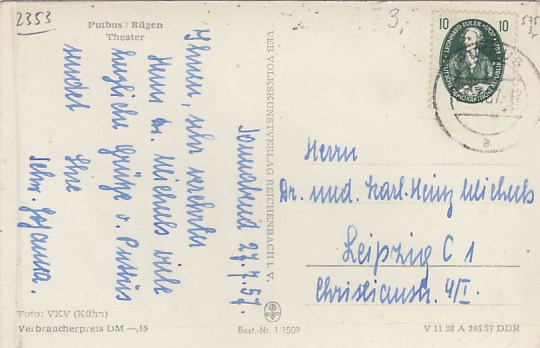 2353
3,
575
3,-
Putbus / Rügen
Theater
Sonnabend 27.7.57.
Ihnen, sehr verehrter
Herr Dr. Michels viele
herzliche Grüße v. Putbus
sendet Ihre
Schw.
VEB VOLKSKUNSTVERLAG REICHENBACH I. V.
10 10
LEONHARD EULER 1707 1783
DEUTSCHE DEMOKRATISCHE REPUBLIK
a
Herrn
Dr. med. Karl-Heinz Michels
Leipzig C 1
Christianstr. 4/I.
Foto: VKV (Kühn)
Verbraucherpreis DM —,15
Best.-Nr. I 1509
V 11 28 A 246 57 DDR